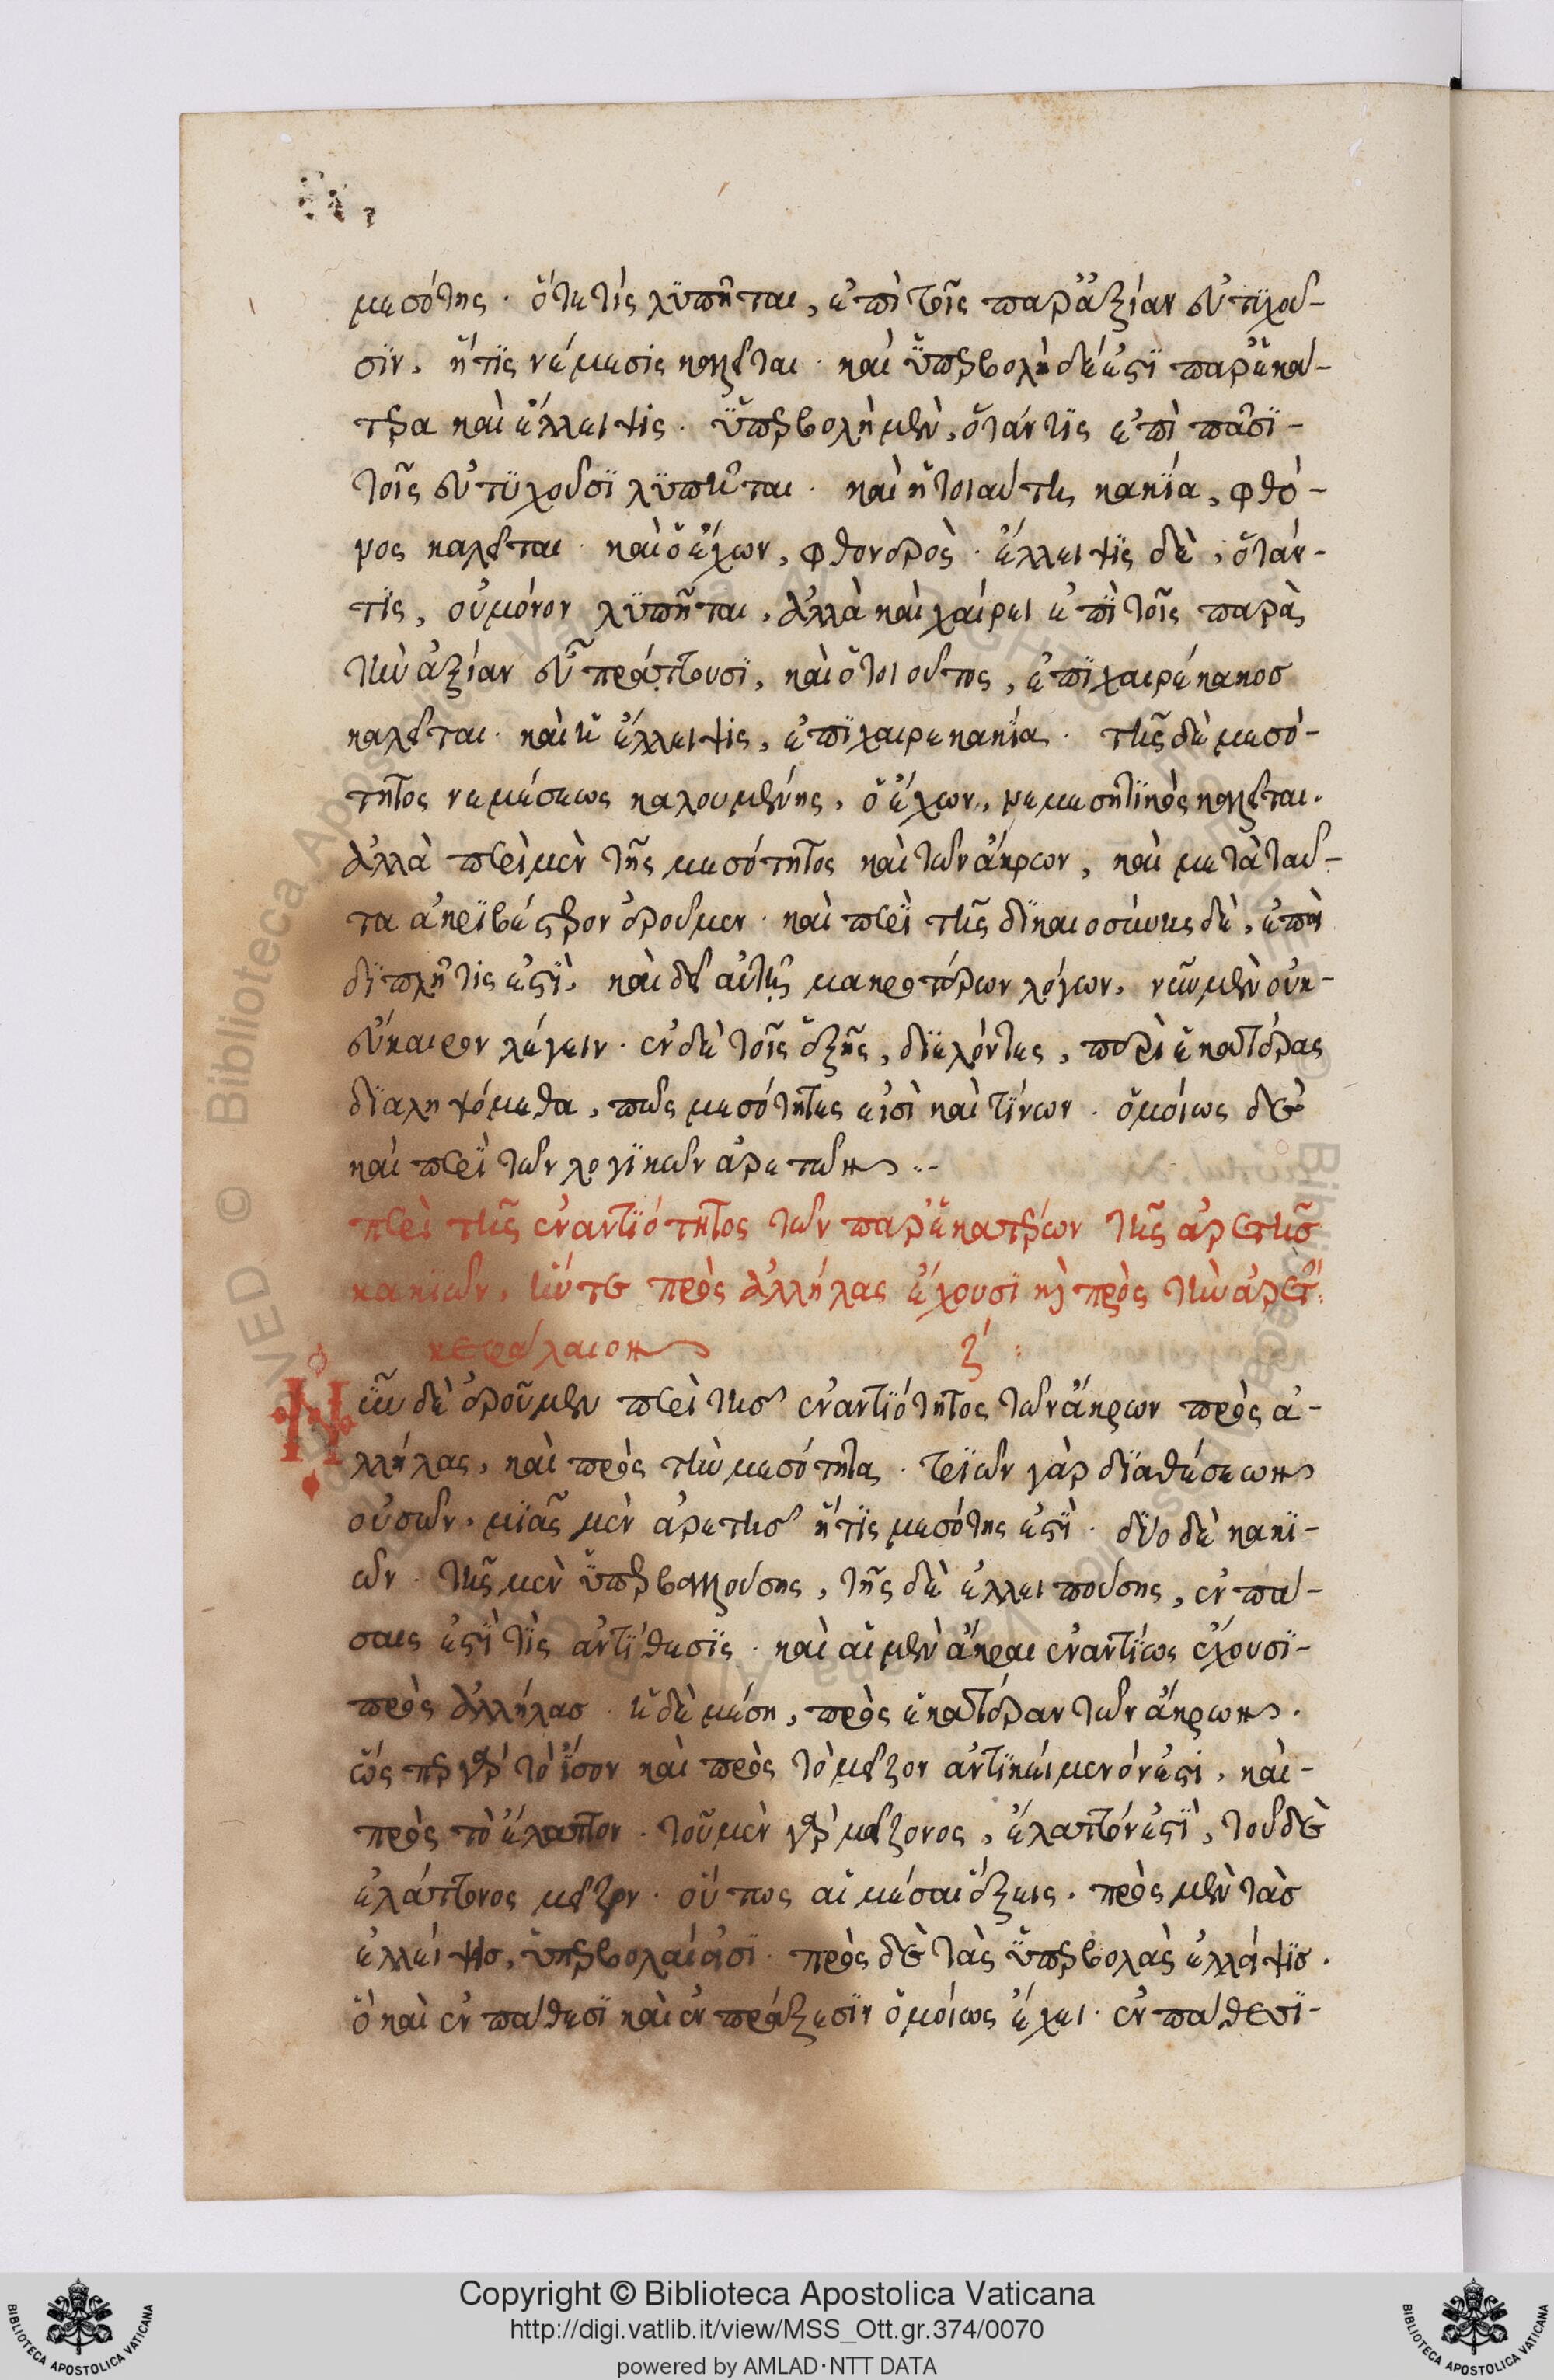 μεσότης · ὅτε τίς λϋπῆται, ἐπὶ τοῖς παρἀξίαν εὐτϋχοῦ-
σϊν, ἥτϊς νέμεσις κα̣λεῖται · καὶ ὕπερβολὴ δέ ἐστϊ παρἑκά-
τερα καὶ ἔλλειψις · ὕπερβολὴ μὲν, ὅτάν τϊς ἐπὶ πᾶσϊ-
τοῖς εὐτϋχοῦσϊ λϋπῆται · καὶ ἡ τοιαύτη κακΐα, φθό-
νος καλεῖται · καὶ ὁ ἔχων, φθονερὸς · ἔλλειψϊς δὲ, ὅτάν-
τίς, οὐμόνον λϋπῆται, ἀλλὰ καὶ χαίρει ἐπῒ τοῖς παρὰ
τὴν ἀξίαν εὖ πράττουσϊ, καὶ ὁ τοιοῦτος, ἐπϊχαιρέκακοσ
καλεῖται · καὶ ἡ ἔλλειψις, ἐπϊχαιρεκακΐα · τῆς δὲ μεσό-
τητος νεμέσεως καλουμένης, ὁ ἔχων, νεμεσητϊκὸς καλεῖται.
ἀλλὰ περὶ μὲν τῆς μεσότητος καὶ τῶν ἄκρων, καὶ μετὰ ταῦ-
τα ἀκρϊβέστερον ἐροῦμεν · καὶ περῒ τῆς δϊκαιοσύνης δὲ, ἐπεὶ
δϊπλῆ τίς ἐστῒ, καὶ δεῖ αὐτῇ μακροτέρων λόγων, νῦν μὲν οὐκ-
εὔκαιρον λέγειν · ἐν δὲ τοῖς ἑξῆς, δϊελόντες, περὶ ἑκατέρας
δϊαληψόμεθα, πῶς μεσότητες εἰσὶ καὶ τΐνων · ὁμοίως δὲ
καὶ περῒ τῶν λογϊκῶν ἀρετῶν ··-
περὶ τῆς ἐναντϊότητος τῶν παρἑκατέρων τῆς ἀρετῆσ
κακϊῶν, ἥν τε πρὸς ἀλλήλας ἔχουσϊ κὶ πρὸς τὴν ἀρετ́ :
κεφάλαιον ζ́ :
Νῦν δὲ ἐροῦμεν περὶ τῆσ ἐναντϊότητος τῶν ἄκρων πρὸς ἀ-
λλήλας, καὶ πρὸς τὴν μεσότητα · τρϊῶν γὰρ δϊαθέσεων
οὐσῶν · μϊᾶς μὲν ἀρετῆσ ἥτϊς μεσότης ἐστῒ · δΰο δὲ κακϊ-
ῶν · τῆς μὲν ὕπερβαλλούσης, τῆς δὲ ἐλλειπούσης, ἐν πά-
σαις ἐστῒ τῒς ἀντΐθεσϊς · καὶ αἱ μὲν ἄκραι ἐναντΐως ἔχουσϊ-
πρὸς ἀλλήλασ · ἡ δὲ μέση, πρὸς ἑκατέραν τῶν ἄκρων ·
ὥς περ γὰρ τὸ ἴσον καὶ πρὸς τὸ μεῖζον ἀντϊκείμενόν ἐστι, καὶ-
πρὸς τὸ ἔλαττον · τοῦ μὲν γὰρ μείζονος, ἔλαττόν ἐστῒ, τοῦ δὲ
ἐλάττονος μεῖζον · οὕτως αἱ μέσαι ἕξεις · πρὸς μὲν τὰσ
ἐλλείψεισ, ὕπερβολαί εἰσϊ · πρὸς δὲ τὰς ὕπερβολὰς ἐλλείψεισ ·
ὃ καὶ ἐν πάθεσϊ καὶ ἐν πράξεσϊν ὁμοίως ἔχει · ἐν πάθεσϊ-
Copyright © Biblioteca Apostolica Vaticana
http://digi.vatlib.it/view/MSS_Ott.gr.374/0070
powered by AMLAD·NTT DATA